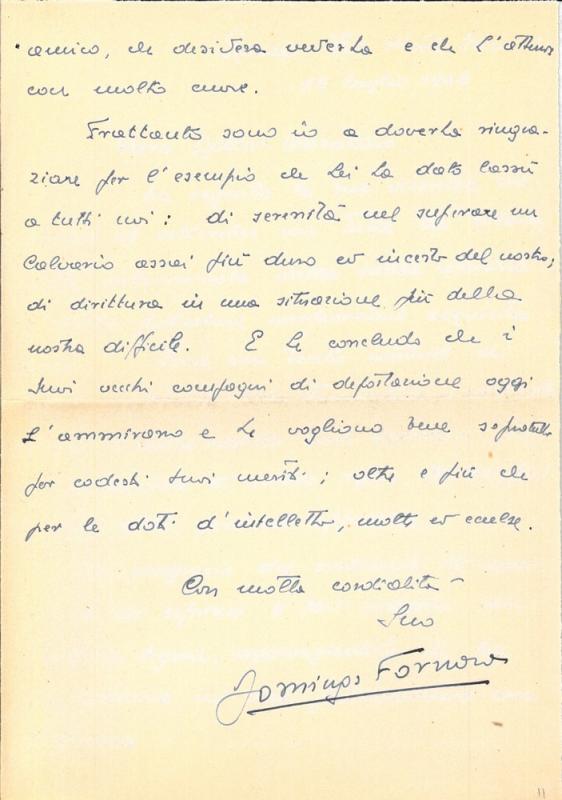 amico, che desidera vederla e che l'attende
con molto cuore.
Frattanto sono io a doverla ringra-
ziare per l'esempio che Lei ha dato lassù
a tutti noi: di serenità nel superare un
Calvario assai più duro ed incerto del nostro;
di dirittura in una situazione più della
nostra difficile. E Le concludo che i
Suoi vecchi compagni di deportazione oggi
L'ammirano e Le vogliono bene soprattutto
per codesti Suoi meriti; oltre e più che
per le doti d'intelletto, molte ed eccelse.
Con molta cordialità
Suo
Domingo Fornara
11